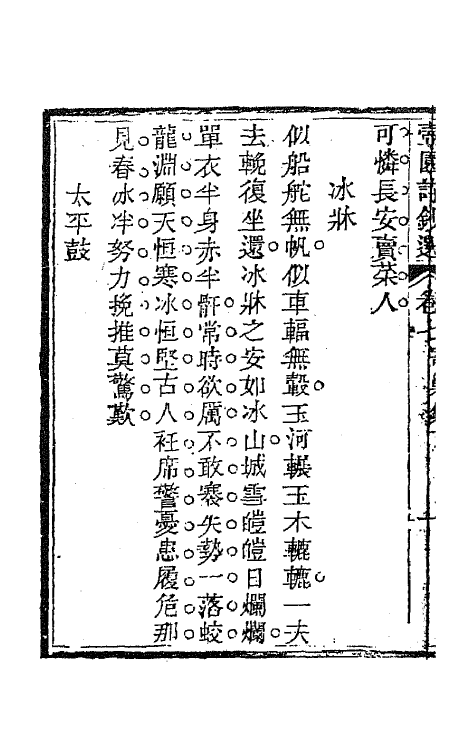 壺園詩鈔選　卷七
可憐長安賣菜人
冰牀
似船舵無帆似車輻無轂玉河輾玉木轆轆一夫
去輓復坐還冰牀之安如冰山城雪皚皚日爛爛
單衣半身赤半骭常時欲厲不敢褰失勢一落蛟
龍淵願天恒寒冰恒堅古人衽席警憂患履危那
見春冰泮努力挽推莫驚歎
太平鼓